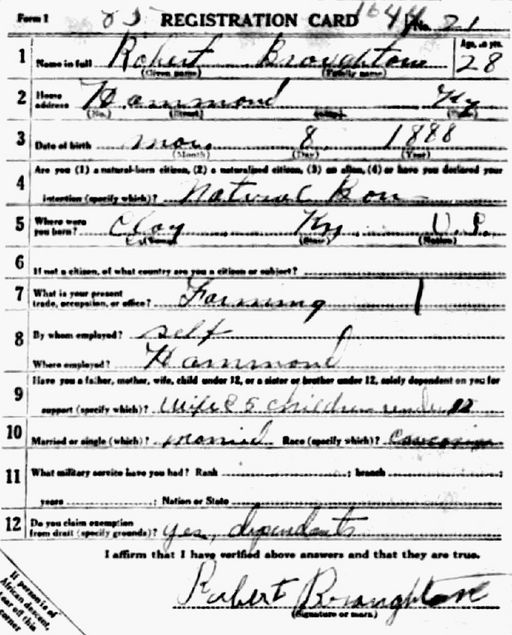 Form 1 85 REGISTRATION CARD 1644 No. 21
1 Name in full Robert Broughton Age, in yrs. 28
(Given name) (Family name)
2 Home address Hammond Ky
(No.) (Street) (City) (State)
3 Date of birth Nov. 8 1888
(Month) (Day) (Year)
Are you (1) a natural-born citizen, (2) a naturalized citizen, (3) an alien, (4) or have you declared your
4 intention (specify which)? Natural Born
5 Where were you born? Clay Ky U.S.
(Town) (State) (Nation)
6 If not a citizen, of what country are you a citizen or subject?
7 What is your present trade, occupation, or office? Farming 1
8 By whom employed? self
Where employed? Hammond
9 Have you a father, mother, wife, child under 12, or a sister or brother under 12, solely dependent on you for
support (specify which)? Wife & 5 children under 12
10 Married or single (which)? married Race (specify which)? Caucasian
11 What military service have you had? Rank ; branch ;
years ; Nation or State
12 Do you claim exemption from draft (specify grounds)? yes, dependents
I affirm that I have verified above answers and that they are true.
Robert Broughton
(Signature or mark)
If person is of
African descent,
tear off this
corner